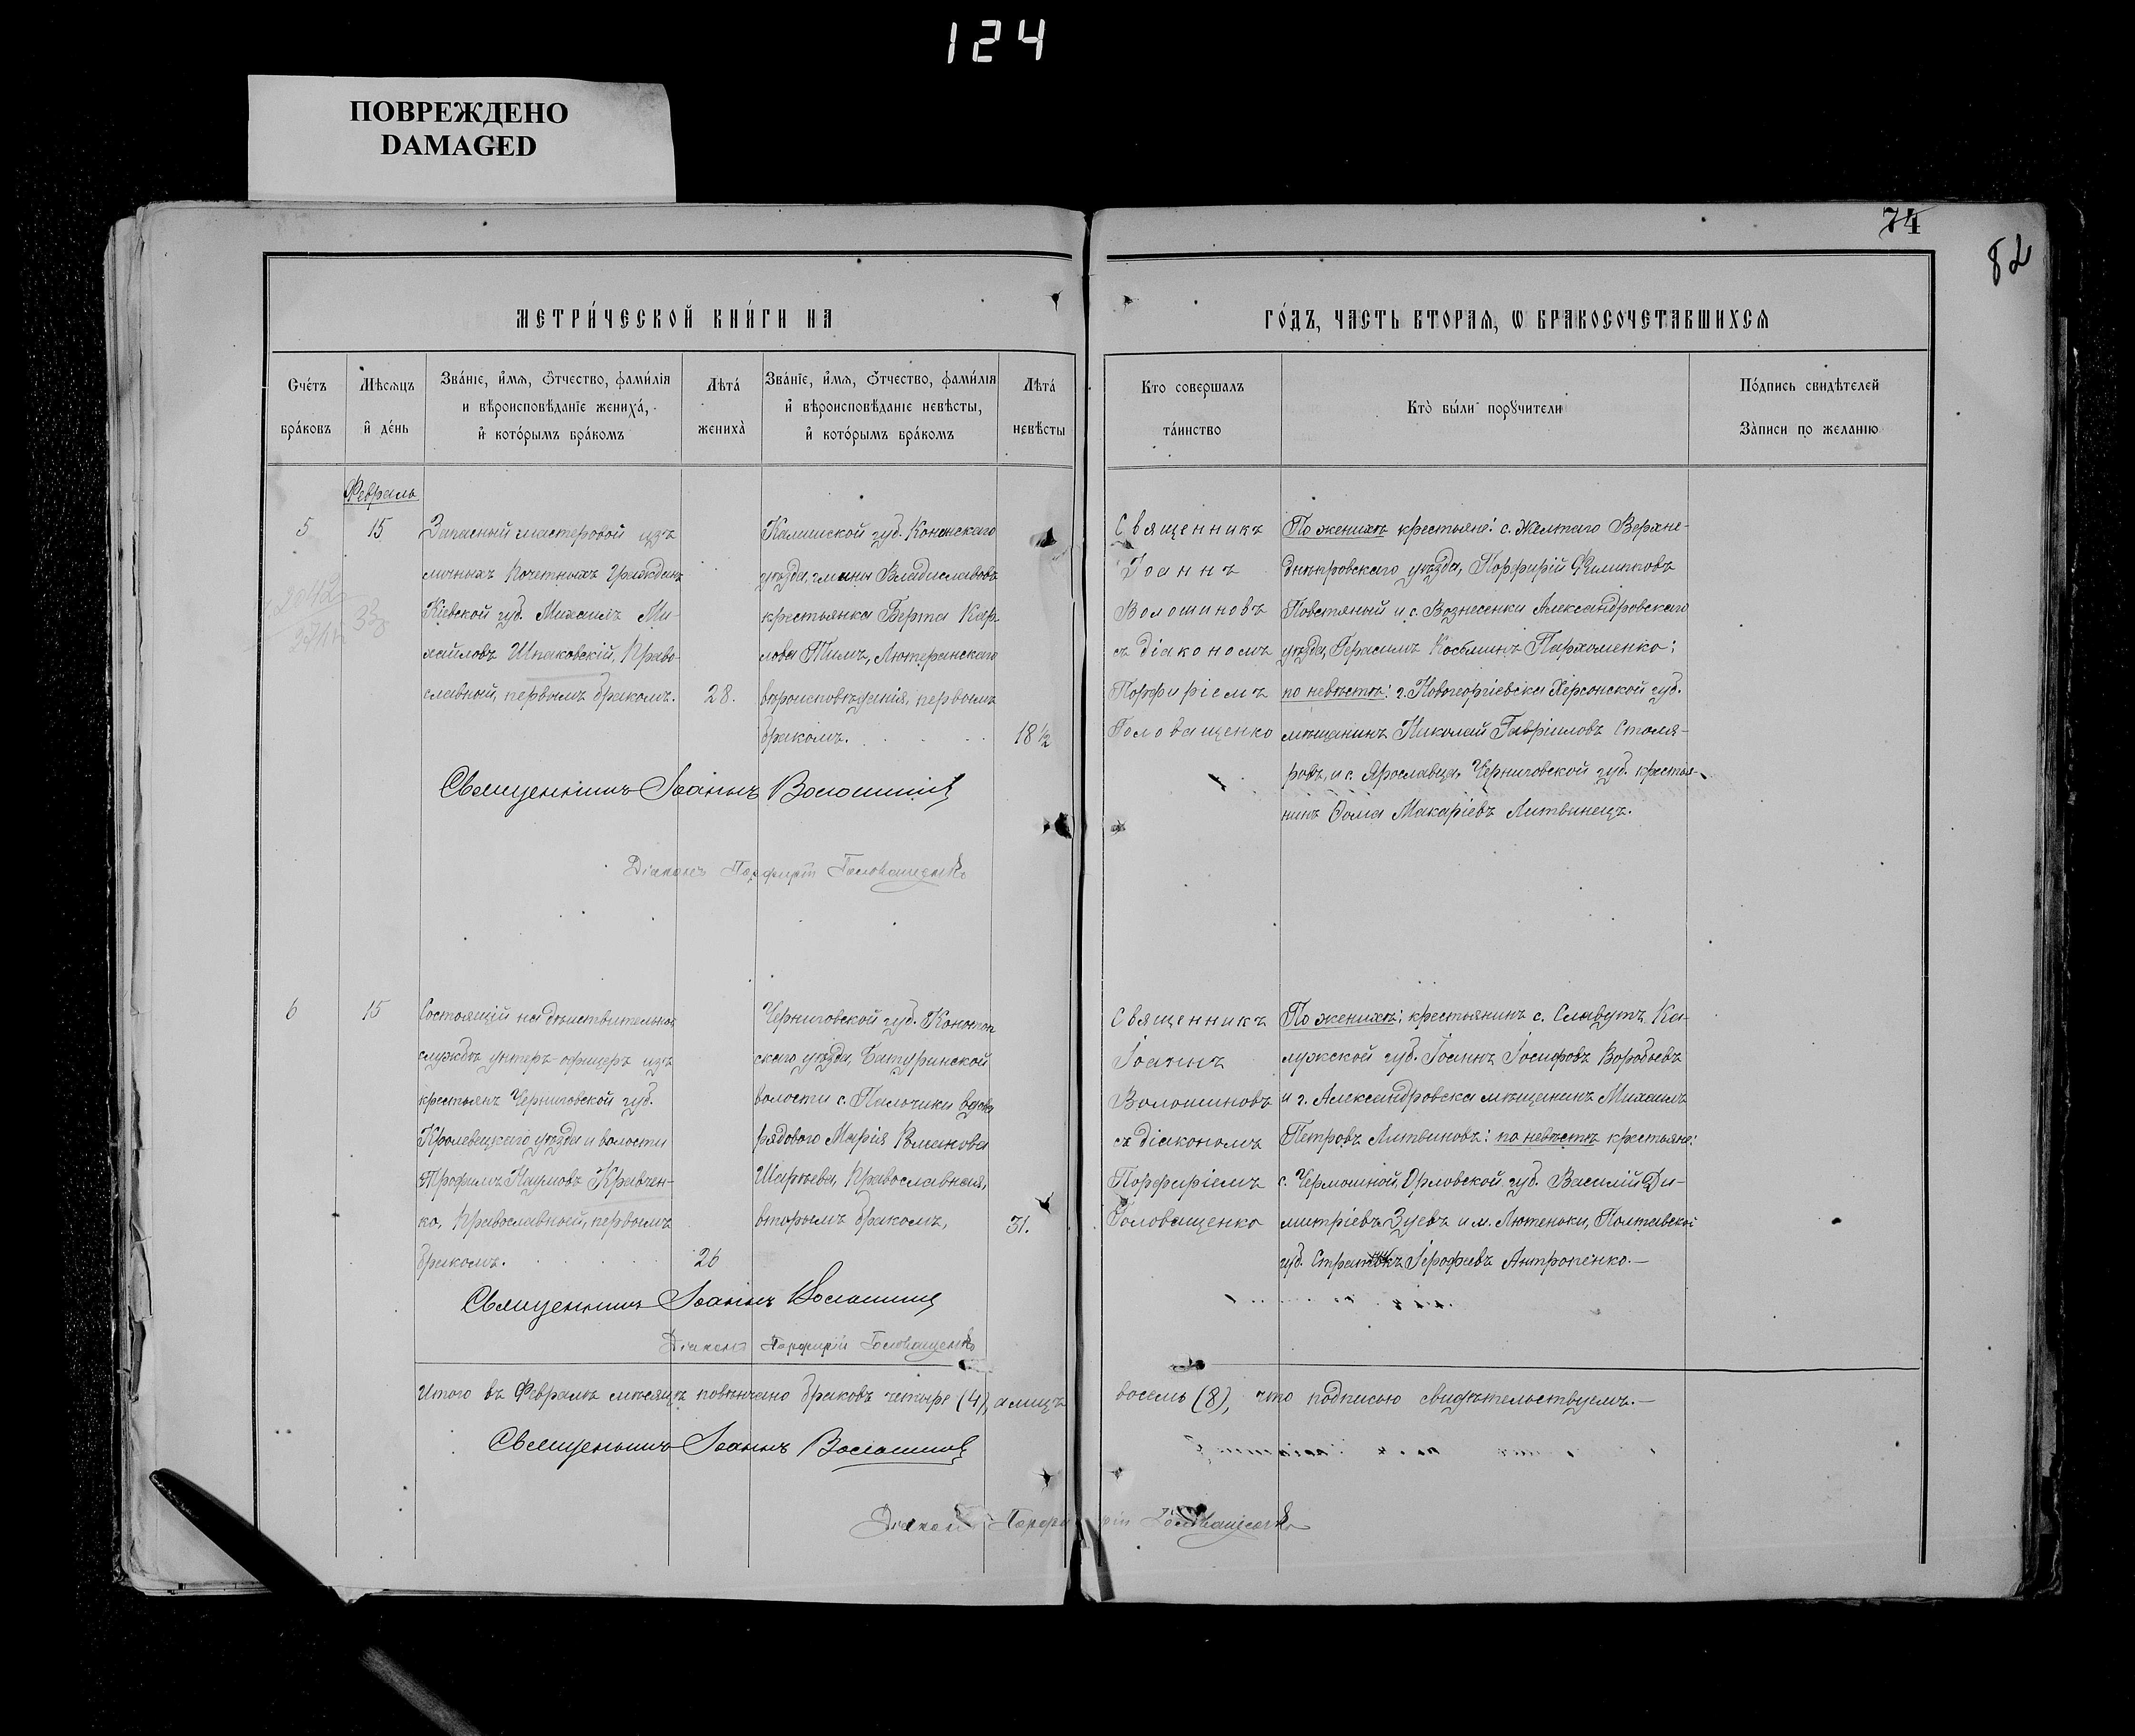 124
ПОВРЕЖДЕНО
DAMAGED
74
82
МЕТРИ́ЧЕСКОЙ КНИ́ГИ НА
ГО́ДЪ, ЧАСТЬ ВТОРАѦ, Ѡ БРАКОСОЧЕТАВШИХСѦ
Сче́тъ бра́ковъ
Мѣсѧцъ и́ де́нь
Зва́нїе, и́мѧ, ѻ́тчество, фами́лїя
и вѣроисповѣданїе жениха́,
и́ кото́рымъ бра́комъ
Лѣта́ жениха̀
Зва́нїе, и́мѧ, ѻ́тчество, фами́лїя
и́ вѣроисповѣданїе невѣсты,
и́ кото́рымъ бра́комъ
Лѣта́ невѣсты
Кто совершалъ та́инство
Кто̀ бы́ли порꙋчители
По́дпись свидѣтелей
За̀писи по желанїю
Февраль
5
15
Запасный мастеровой изъ
личныхъ Почетныхъ Гражданъ
Кіевской губ. Михаилъ Ми-
хайловъ Шпаковскій, Право-
славный, первымъ бракомъ.
28.
Калишской губ. Конинскаго
уѣзда, гмины Владиславовъ
крестьянка Берта Кар-
лова Тимъ, Лютеранскаго
вѣроисповѣданія, первымъ
бракомъ.
18 ½
Священникъ
Іоаннъ
Волошиновъ
съ діакономъ
Порфиріемъ
Головащенко
По женихѣ крестьяне: с. Желтаго Верхне-
днѣпровскаго уѣзда, Порфирій Филиповъ
Повстяный и с. Вознесенки Александровскаго
уѣзда, Герасимъ Косьминъ Пархоменко;
по невѣстѣ: г. Новогеоргіевска Херсонской губ.
мѣщанинъ Николай Гавріиловъ Столя-
ровъ, и с. Ярославца, Черниговской губ. крестья-
нинъ Ѳома Макаріевъ Литвинецъ.
Священникъ Іоаннъ Волошиновъ
Діаконъ Порфирій Головащенко
6
15
Состоящій на дѣйствительной
службѣ унтеръ-офицеръ изъ
крестьянъ Черниговской губ.
Кролевецкаго уѣзда и волости
Трофимъ Наумовъ Кравчен-
ко, Православный, первымъ
бракомъ.
26
Черниговской губ. Коното-
скаго уѣзда, Батуринской
волости с. Пальчики вдова
рядового Марія Романова
Шаркева, Православная,
вторымъ бракомъ,
31.
Священникъ
Іоаннъ
Волошиновъ
съ діакономъ
Порфиріемъ
Головащенко
По женихѣ: крестьянинъ с. Славутъ Ка-
лужской губ. Іоаннъ Іосифовъ Воробьевъ
и г. Александровска мѣщанинъ Михаилъ
Петровъ Литвиновъ; по невѣстѣ крестьяне:
с. Чермошной, Орловской губ. Василій Ди-
митріевъ Зуевъ и м. Лютеньки, Полтавской
губ. Іерофѣевъ Антропенко.—
Священникъ Іоаннъ Волошиновъ
Діаконъ Порфирій Головащенко
Итого въ Февралѣ мѣсяцѣ повѣнчано браковъ четыре (4), а лицъ восемь (8), что подписью свидѣтельствуемъ.—
Священникъ Іоаннъ Волошиновъ
Діаконъ Порфирій Головащенко